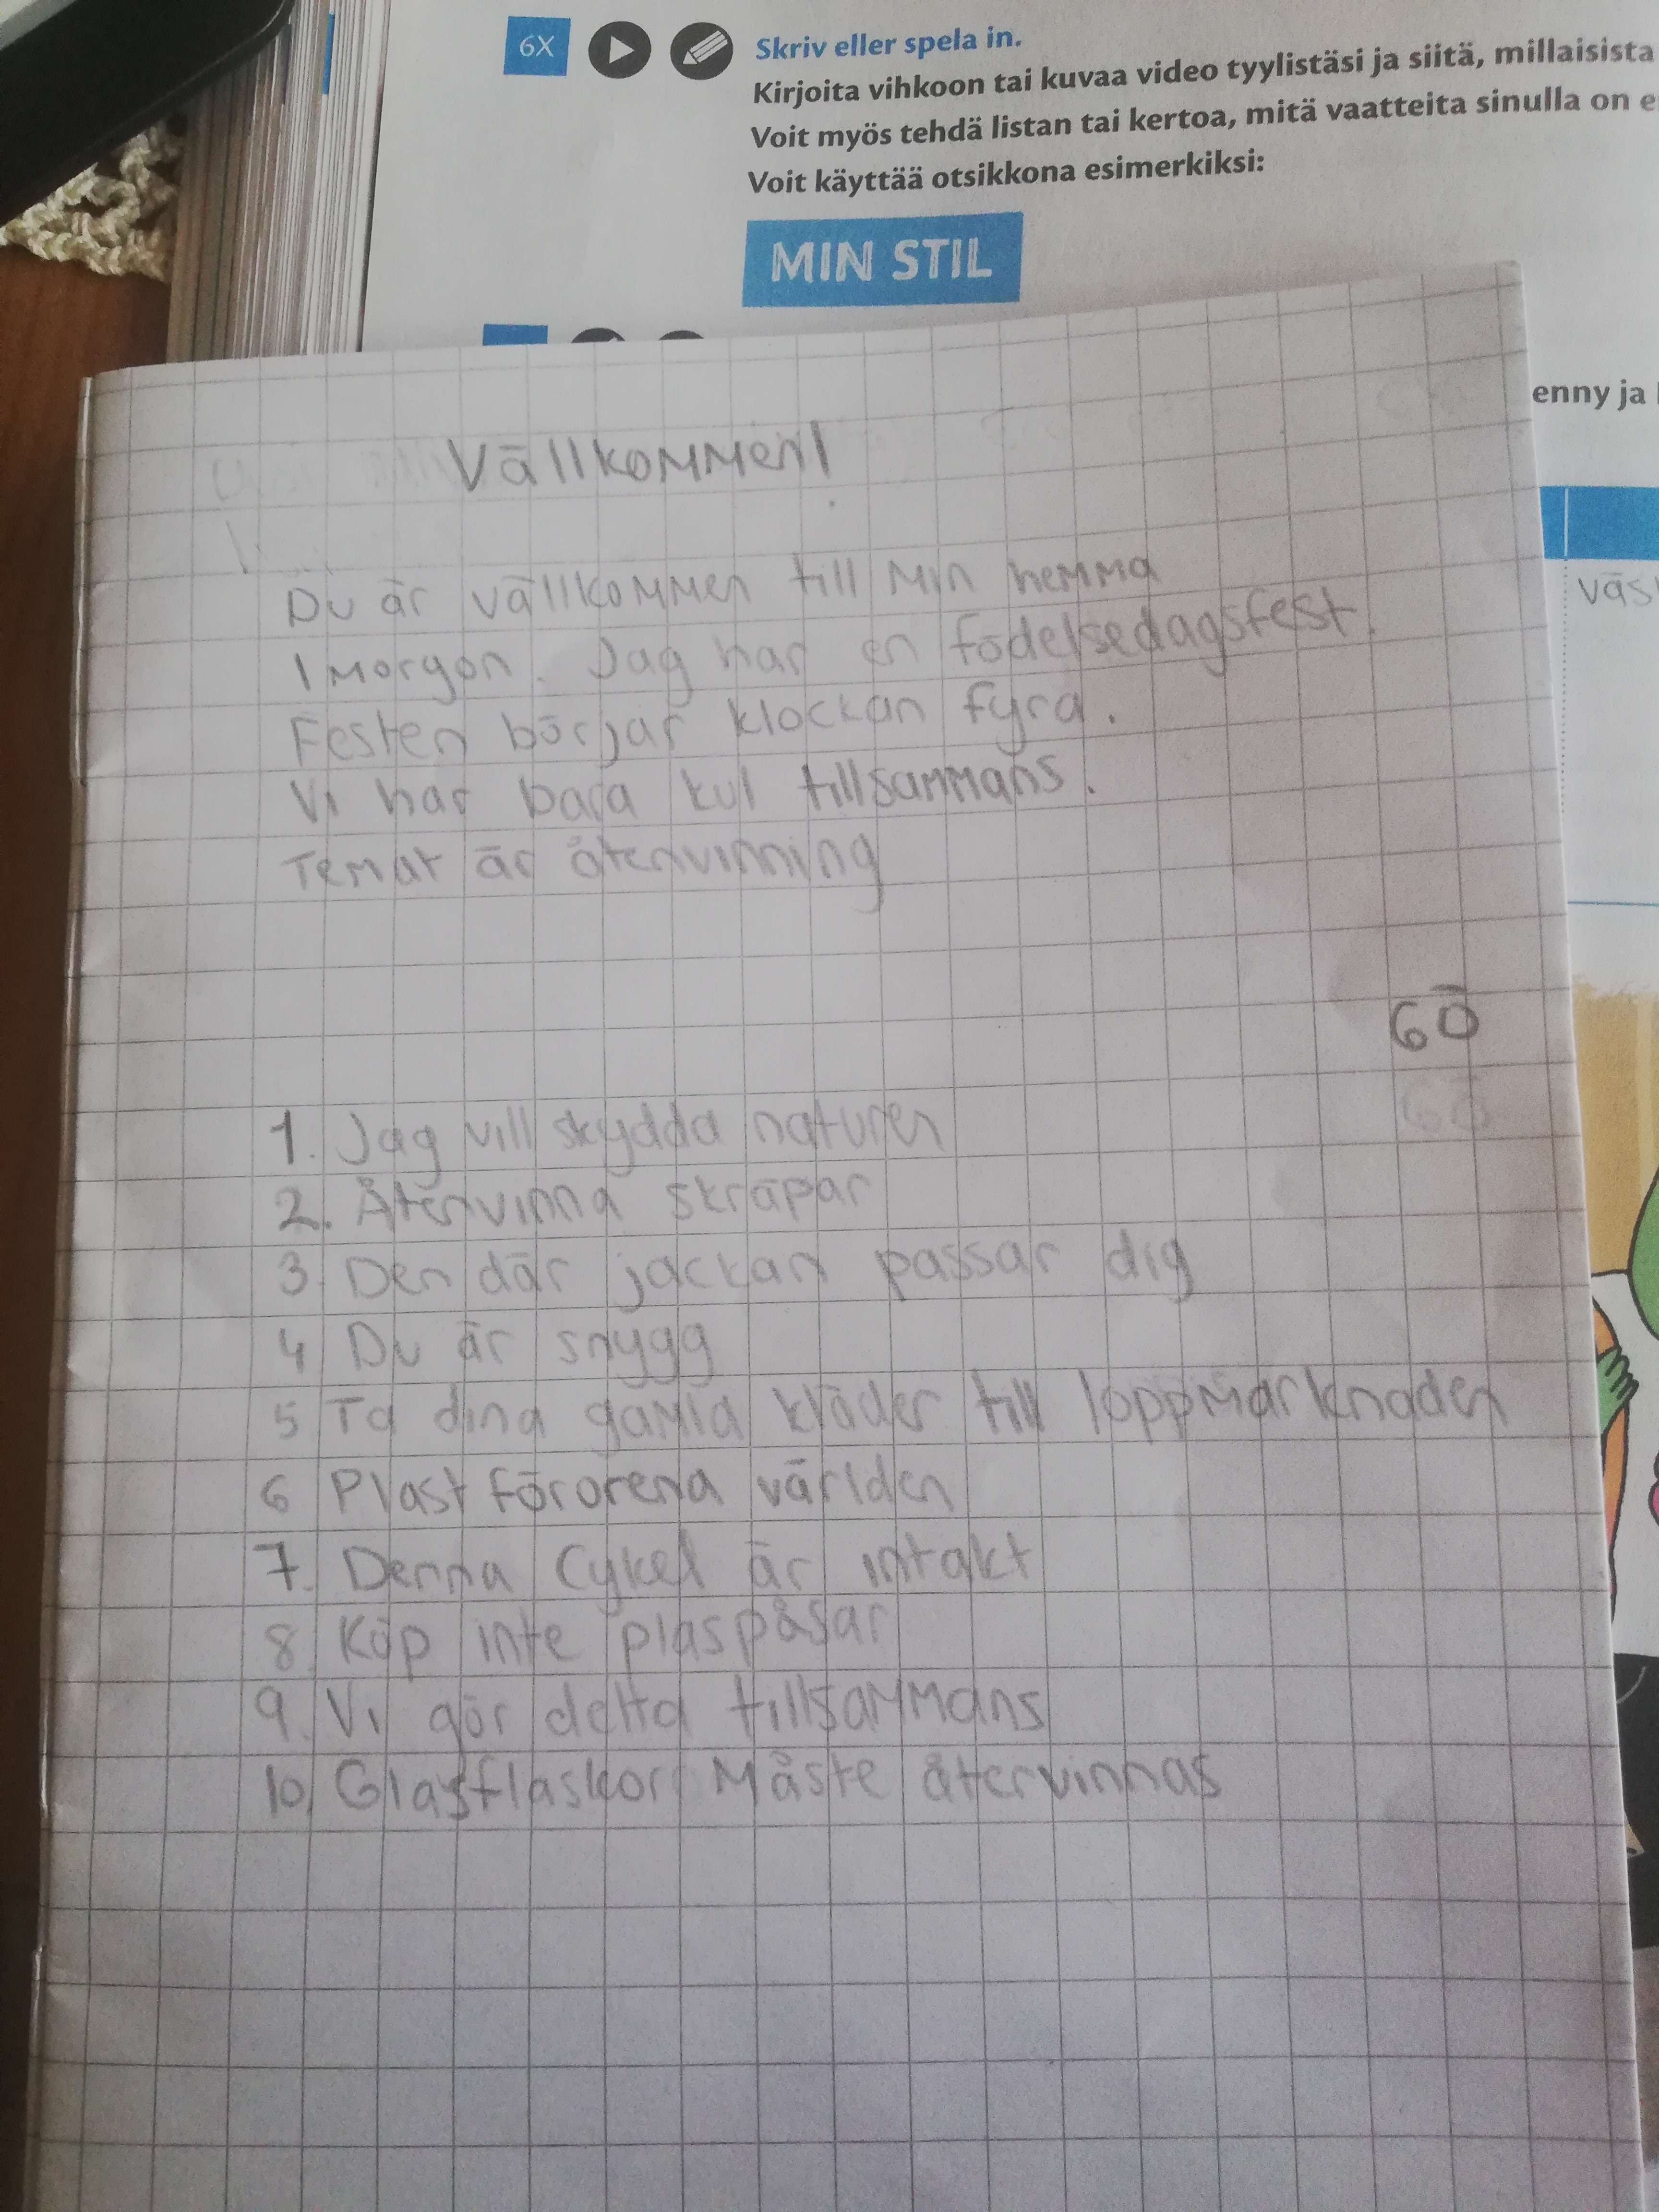 6X
Skriv eller spela in.
Kirjoita vihkoon tai kuvaa video tyylistäsi ja siitä, millaisista
Voit myös tehdä listan tai kertoa, mitä vaatteita sinulla on
Voit käyttää otsikkona esimerkiksi:
MIN STIL
enny ja
Vällkommen!
Du är vällkommen till min hemma
imorgon. Jag har en födelsedagsfest.
Festen börjar klockan fyra.
Vi har bara kul tillsammans.
Temat är återvinning
6Ö
1. Jag vill skydda naturen
2. Återvinna skräpar
3. Den där jackan passar dig
4 Du är snygg
5 Ta dina gamla kläder till loppmarknaden
6 Plast förorena världen
7. Denna Cykel är intakt
8. Köp inte plaspåsar
9. Vi gör detta tillsammans
10. Glasflaskor Måste återvinnas